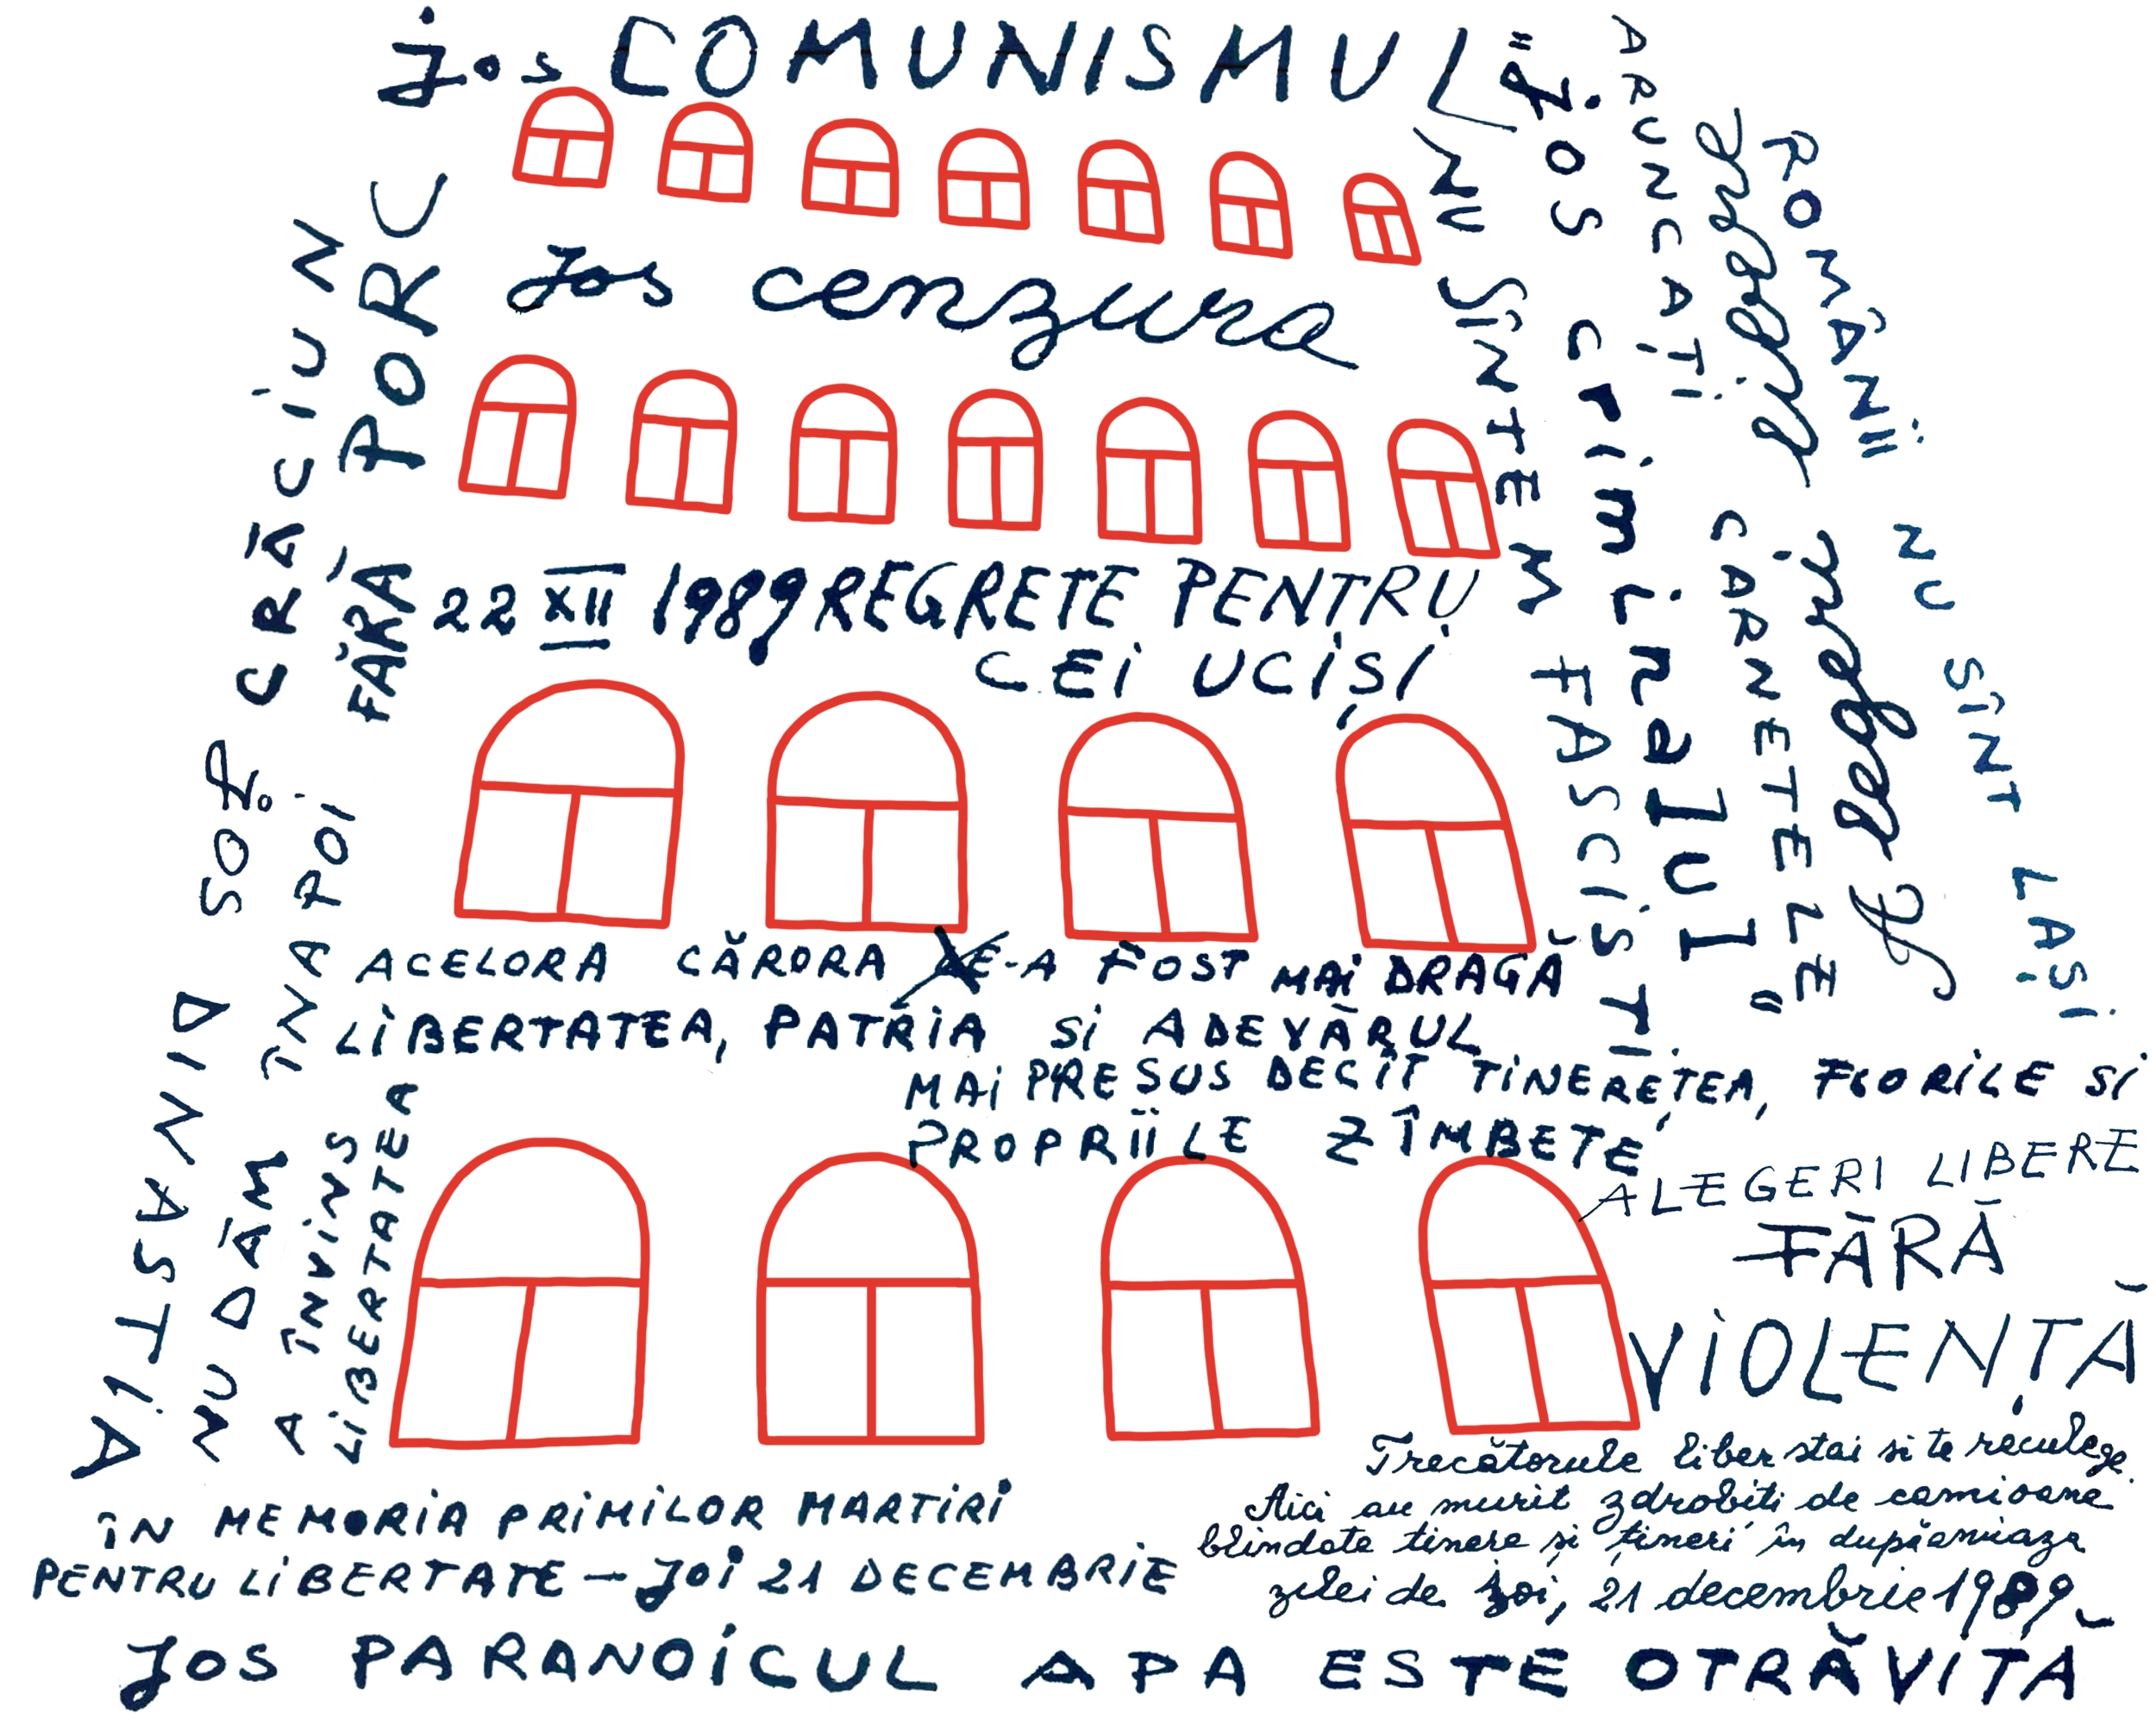 jos COMUNISMUL
Jos cenzura
CRĂCIUN
FĂRĂ PORC
NU SÎNTEM FASCIȘTI
"Jos criminalul"
ARUNCATI CARNETELE
ROMÂNII NU SÎNT LASI
22 XII 1989 REGRETE PENTRU
CEI UCIȘI
ACELORA CĂRORA LE-A FOST MAI DRAGĂ
LIBERTATEA, PATRIA SI ADEVĂRUL
MAI PRESUS DECÎT TINEREȚEA, FLORILE SI
PROPRIILE ZÎMBETE
JOS DINASTIA
NU DĂM ÎNAPOI
A ÎNVINS
LIBERTATEA
ALEGERI LIBERE
FĂRĂ
VIOLENȚĂ
Trecătorule liber stai si te reculege
Aici au murit zdrobiti de camioane
blindate tinere și tineri în dupăamiaza
zilei de Joi, 21 decembrie 1989
ÎN MEMORIA PRIMILOR MARTIRI
PENTRU LIBERTATE – JOI 21 DECEMBRIE
JOS PARANOICUL APA ESTE OTRĂVITĂ